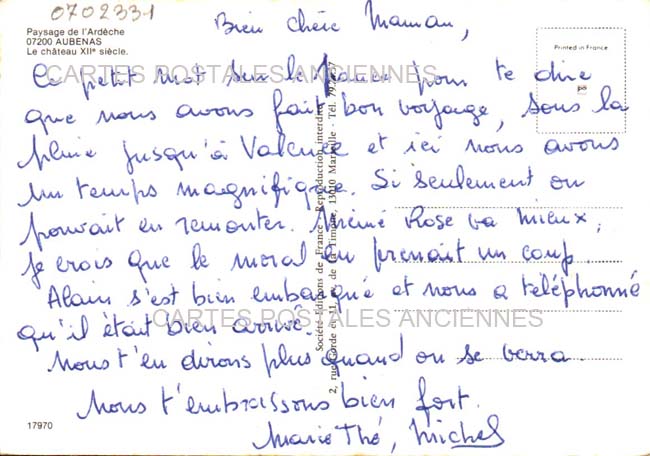 0702331
Paysage de l'Ardèche
07200 AUBENAS
Le château XIIe siècle.
Printed in France
Bien chère Maman,
Ce petit mot sur le pour te dire
que nous avons fait bon voyage, sous la
pluie jusqu'à Valence et ici nous avons
un temps magnifique. Si seulement on
pouvait en remonter. Mémé Rose va mieux,
je crois que le moral en prenait un coup
Alain s'est bien embarqué et nous a téléphonné
qu'il était bien arrivé.
Nous t'en dirons plus quand on se verra.
Nous t'embrassons bien fort.
Marie Thé, Michel
17970
Société Editions de France - Reproduction interdite
2, rue Gardé et 11, av. de la Timone, 13010 Marseille - Tél.
CARTES POSTALES ANCIENNES
CARTES POSTALES ANCIENNES